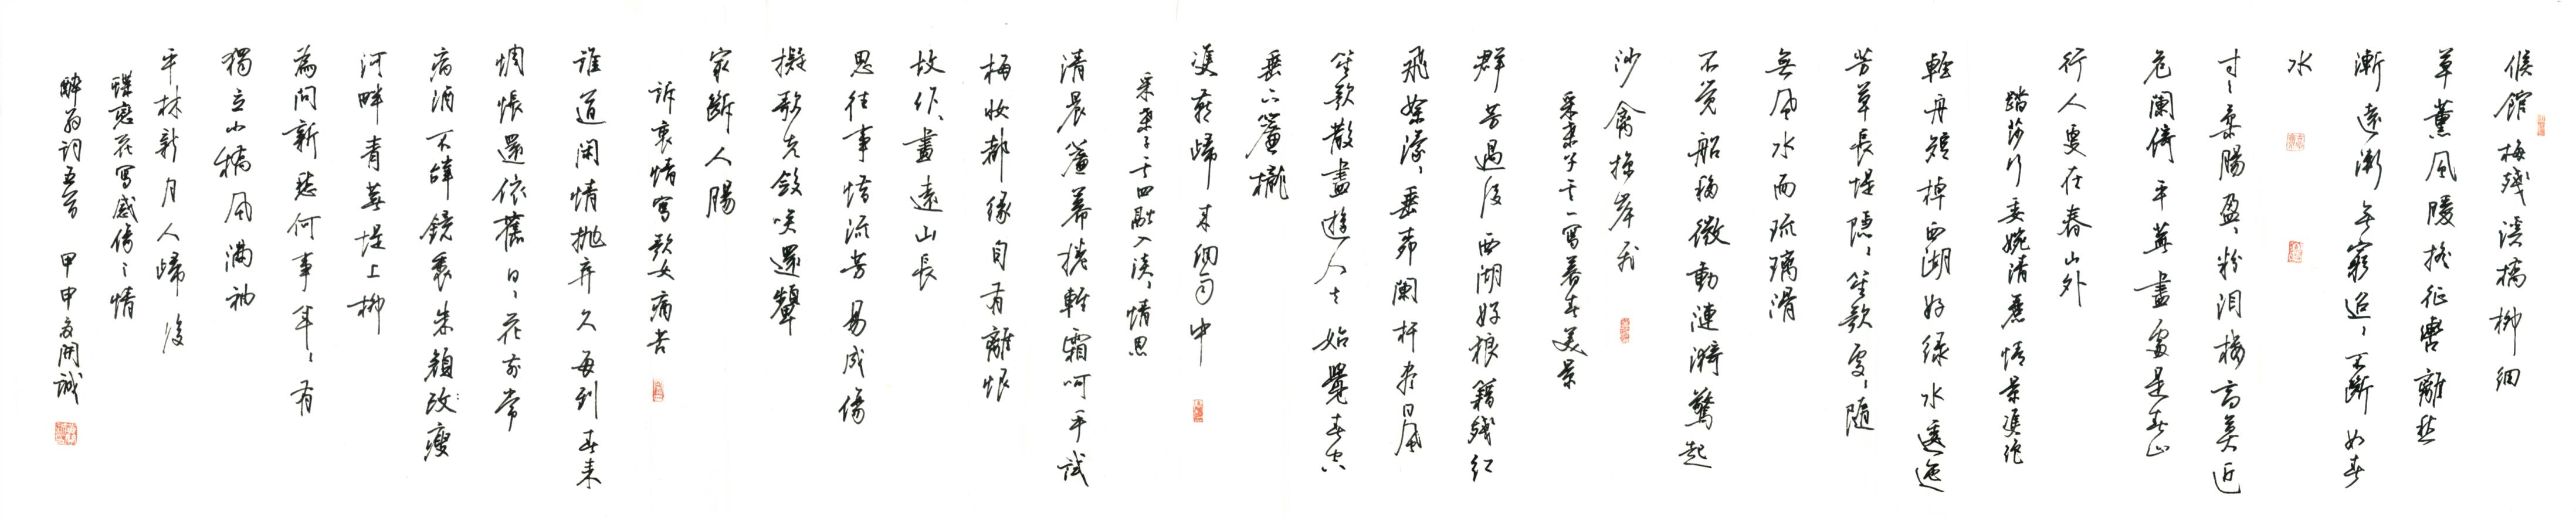 候館梅殘溪橋柳細
草薰風暖搖征轡離愁
漸遠漸無窮迢迢不斷如春
水
寸寸柔腸盈盈粉淚樓高莫近
危闌倚平蕪盡處是春山
行人更在春山外
踏莎行 委婉清麗情景雋絕
輕舟短棹西湖好綠水逶迤
芳草長堤隱隱笙歌處處隨
無風水面琉璃滑
不覺船移微動漣漪驚起
沙禽掠岸飛
采桑子 其一寫暮春美景
群芳過後西湖好狼籍殘紅
飛絮濛濛垂柳闌杆盡日風
笙歌散盡遊人去始覺春空
垂下簾櫳
雙燕歸來細雨中
采桑子 其四融入淡淡情思
清晨簾幕捲輕霜呵手試
梅妝都緣自有離恨
故作畫遠山長
思往事惜流芳易成傷
擬歌先斂笑還顰
最斷人腸
訴衷情 寫歌女痛苦
誰道閑情拋棄久每到春來
惆悵還依舊日日花前常
病酒不辭鏡裏朱顏改瘦
河畔青蕪堤上柳
為問新愁何事年年有
獨立小橋風滿袖
平林新月人歸後
蝶戀花 寫感傷之情
醉翁詞五首 甲申 開誠